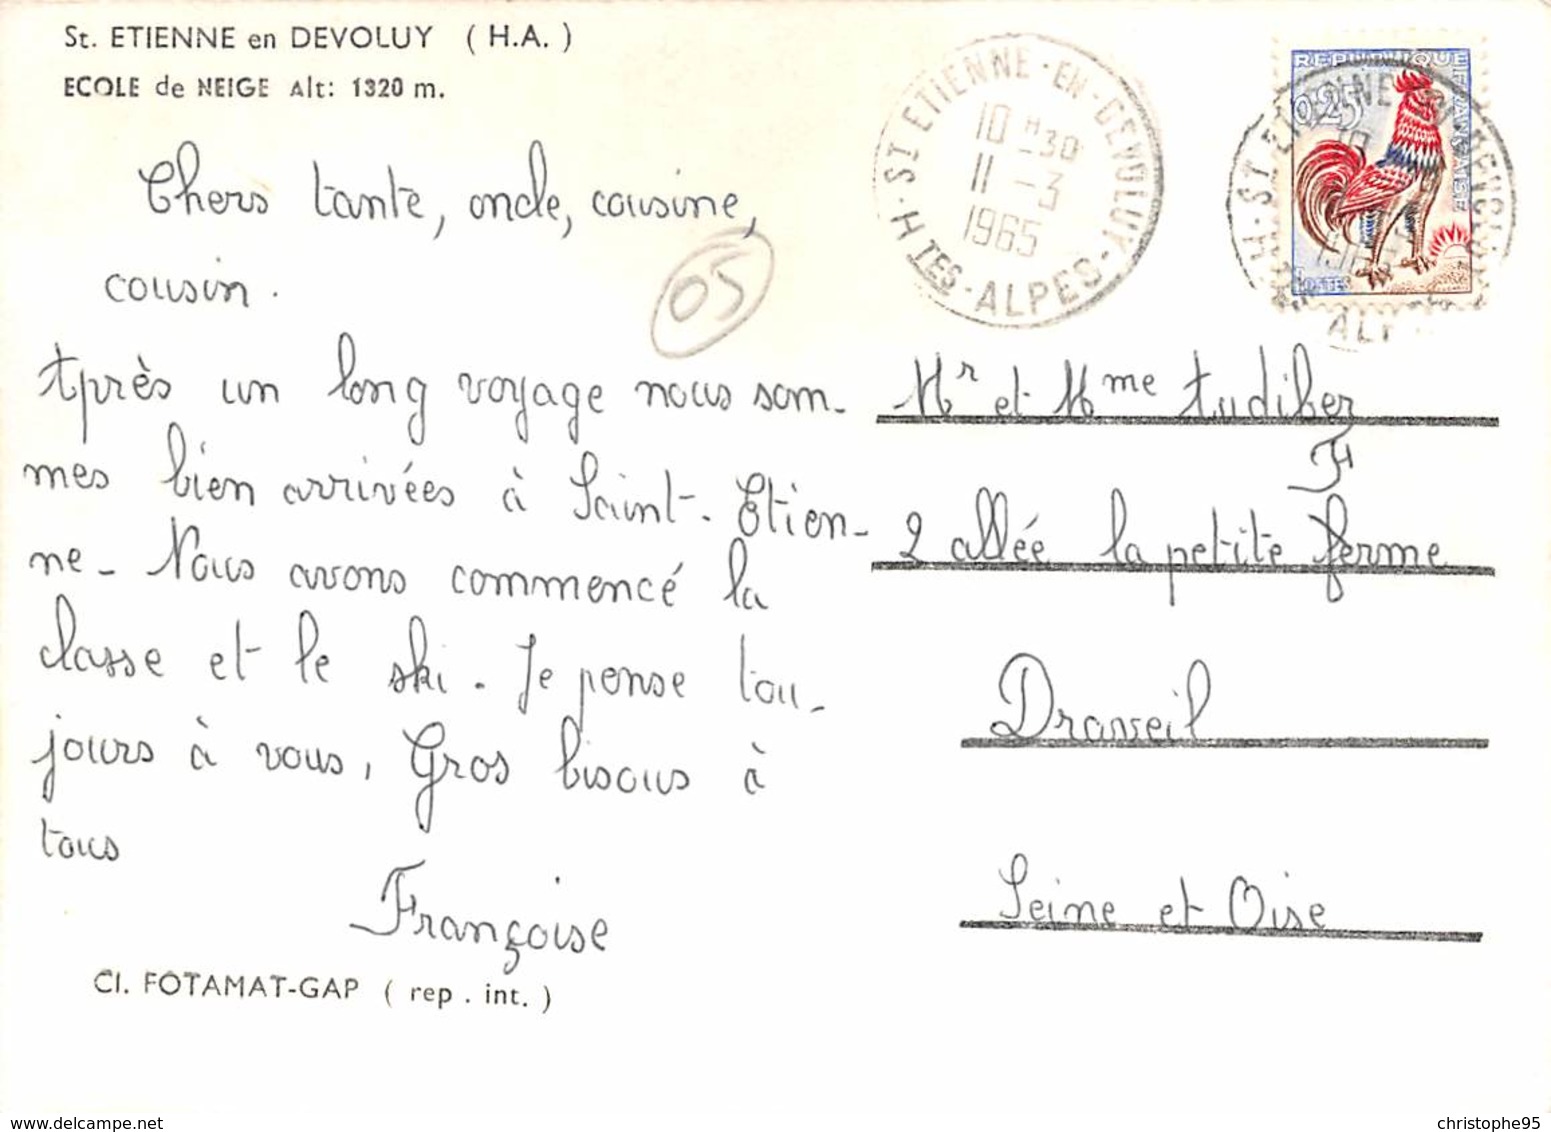 St. ETIENNE en DEVOLUY ( H.A. )
ECOLE de NEIGE Alt: 1320 m.
Chers tante, oncle, cousine,
cousin.
05
Après un long voyage nous som-
mes bien arrivées à Saint-Etien-
ne. Nous avons commencé la
classe et le ski. Je pense tou-
jours à vous, Gros bisous à
tous
Françoise
Cl. FOTAMAT-GAP ( rep. int. )
ST ETIENNE-EN-DEVOLUY
10 H30
11 -3
1965
HTES-ALPES
REPUBLIQUE FRANÇAISE
0,25
POSTES
Mr et Mme Audiber
F
2 allée la petite ferme
Draveil
Seine et Oise
christophe95